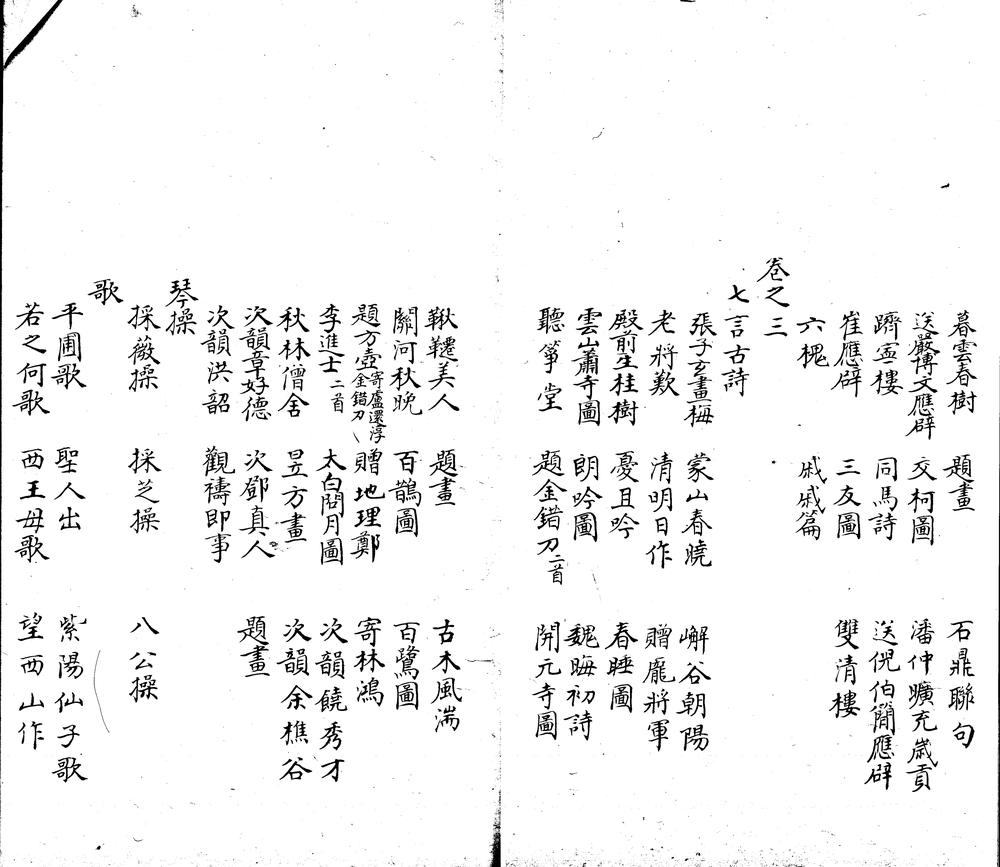 暮雲春樹 題畫 石鼎聯句
送嚴博文應辟 交柯圖 潘仲曠充歲貢
躋雲樓 同馬詩 送倪伯簡應辟
崔應辟 三友圖 雙清樓
六槐 戚戚篇
卷之三
七言古詩
張子玄畫梅 蒙山春曉 嶰谷朝陽
老將歎 清明日作 贈龐將軍
殿前生桂樹 憂且吟 春睡圖
雲山蕭寺圖 朗吟圖 魏晦初詩
聽箏堂 題金錯刀二首 開元寺圖
鞦韆美人 題畫 古木風湍
關河秋晚 百鵲圖 百鷺圖
題方壺寄盧還淳金錯刀 贈地理鄭 寄林鴻
李進士二首 太白問月圖 次韻饒秀才
秋林僧舍 昱方畫 次韻余樵谷
次韻章好德 次鄧真人 題畫
次韻洪韶 觀禱即事
琴操
採薇操 採芝操 八公操
歌
平圃歌 聖人出 紫陽仙子歌
若之何歌 西王母歌 望西山作